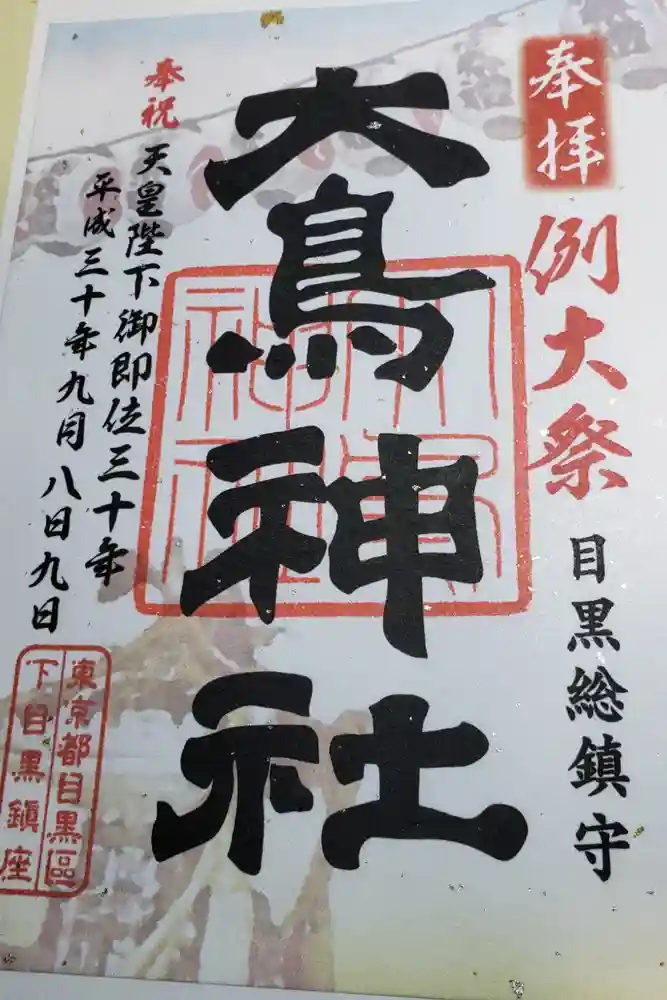 奉拝
例大祭
目黒総鎮守
大鳥神社
奉祝
天皇陛下御即位三十年
平成三十年九月八日九日
東京都目黒區
下目黒鎮座